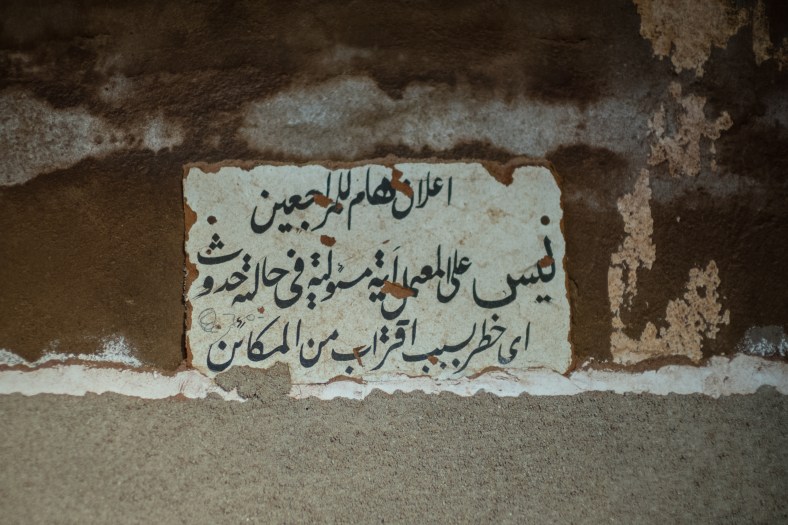 اعلان هام للمراجعين
ليس على المعمل أية مسؤلية في حالية حدوث
اى خطر بسبب اقتراب من المكائن